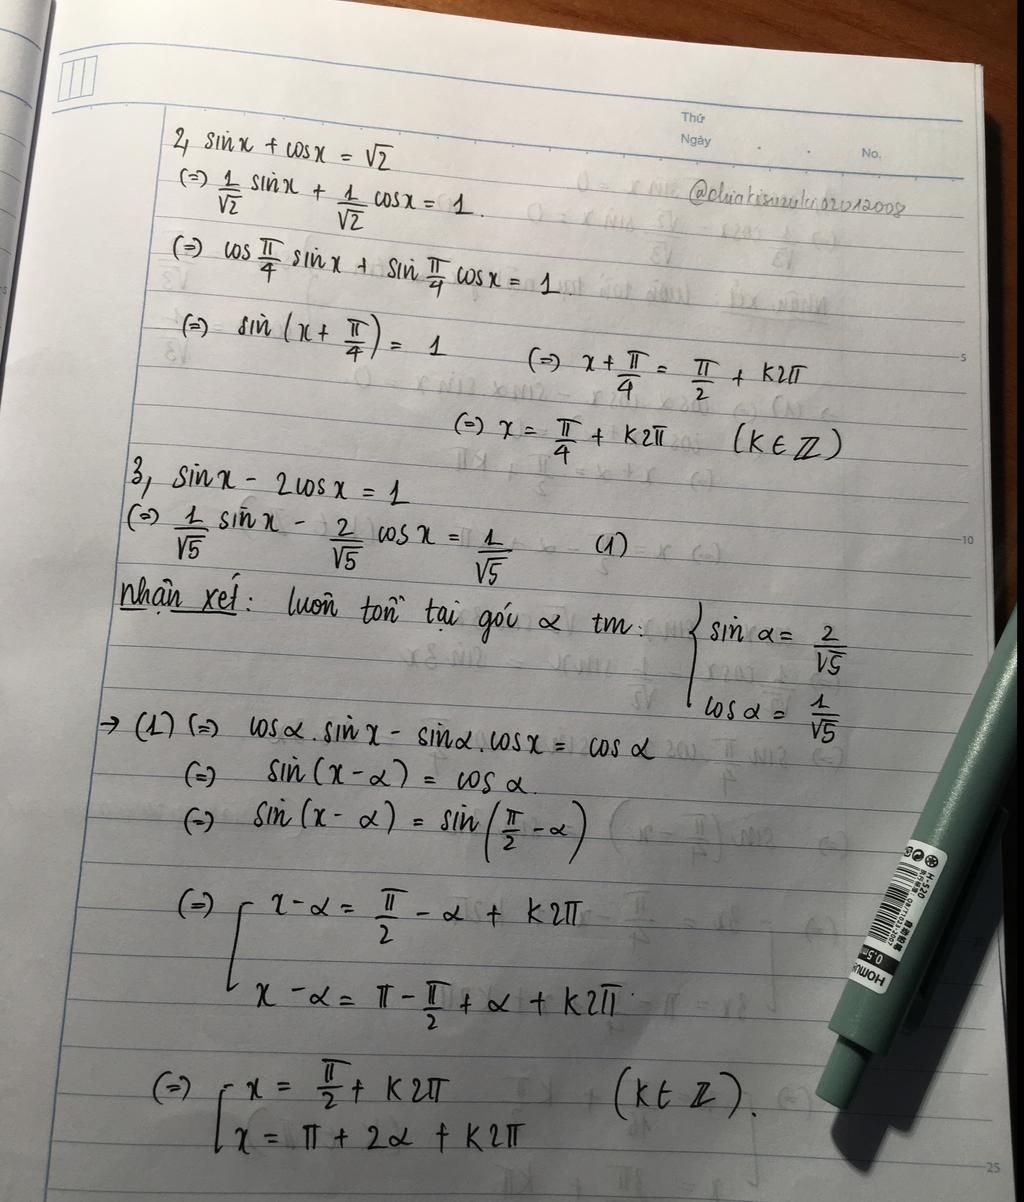 Thứ
Ngày
No.
2, sinx + cosx = √2
(=) 1/√2 sinx + 1/√2 cosx = 1.
(=) cos π/4 sinx + sin π/4 cosx = 1.
(=) sin (x + π/4) = 1 (=) x + π/4 = π/2 + k2π
5
(=) x = π/4 + k2π (k ∈ ℤ)
3, sinx - 2cosx = 1
(=) 1/√5 sinx - 2/√5 cosx = 1/√5 (1)
10
nhận xét: luôn tồn tại góc α tm: { sin α = 2/√5
cos α = 1/√5
→ (1) (=) cosα.sinx - sinα.cosx = cos α
(=) sin(x-α) = cos α.
(=) sin(x - α) = sin(π/2 - α)
(=) [ x-α = π/2 - α + k2π
x - α = π - π/2 + α + k2π.
(=) [ x = π/2 + k2π (k ∈ ℤ).
x = π + 2α + k2π
25
H-520
0.5m